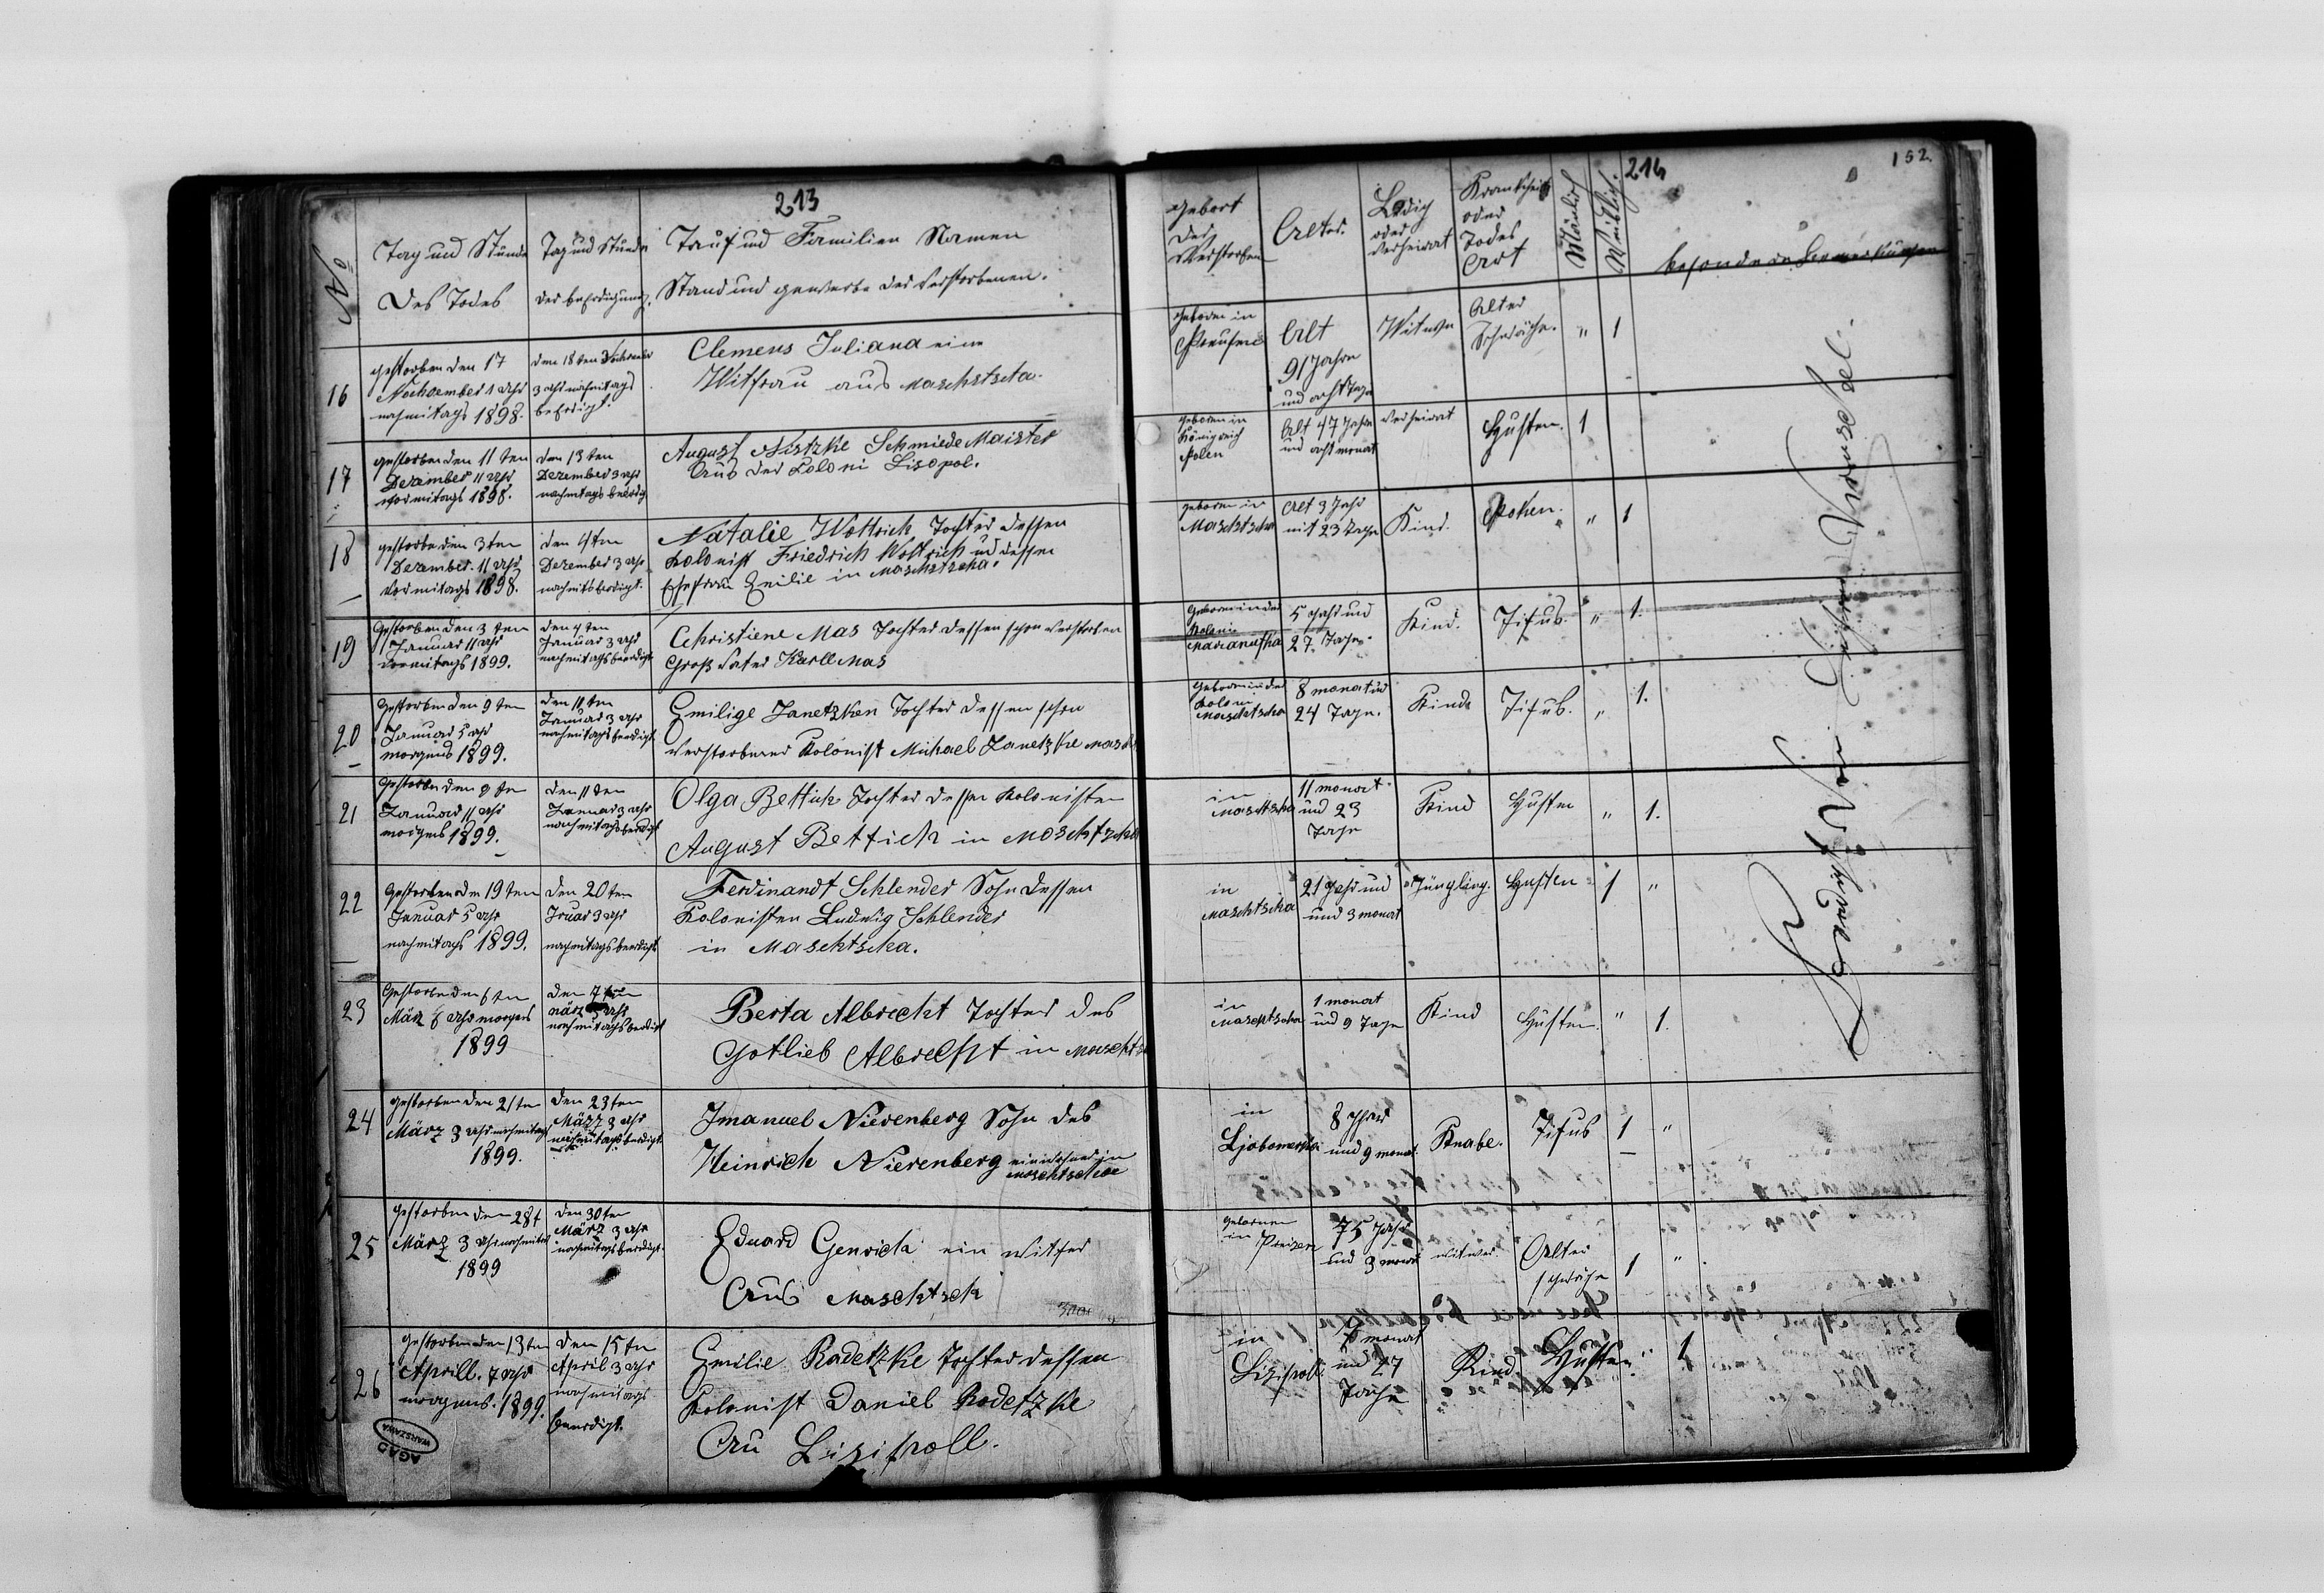 213
No
Tag und Stunde
des Todes
Tag und Stunde
der beerdigung.
Tauf und Familien Namen
Stand und gewerbe der Verstorbenen.
16
gestorben den 17
November 1 Uhr
nachmitags 1898.
den 18ten
3 uhr nachmitags
beerdigt.
Clemens Juliana eine
Witfrau aus Maschtscha.
17
gestorben den 11 ten
Dezember 11 Uhr
vormitags 1898.
den 13 ten
Dezember 3 uhr
nachmitags beerdig
August Nistzke Schmiede Maister
Aus der Coloni Lisopol.
18
gestorben den 3ten
Dezember. 11 Uhr
vormitags 1898.
den 4ten
Dezember 3 Uhr
Natalie Wottrich Tochter dessen
Kolonist Friedrich Wottrich und dessen
Ehefrau Emilie in Maschtscha.
19
Gestorben den 3 ten
Januar 11 Uhr
vormitags 1899.
den 4ten
Januar 3 Uhr
nachmitags beerdigt
Christiene Mas Tochter dessen schon verstorben
Groß Vater Karll Mas
20
Gestorben den 9 ten
Januar 5 uhr
morgens 1899.
den 11 ten
Januar 3 Uhr
nachmitags beerdigt
Emilige Janetzken Tochter dessen schon
verstorbener Kolonist Michael Janetzke
21
Gestorben den 9 ten
Januar 11 Uhr
morgens 1899.
den 11 ten
Januar 3 Uhr
nachmitags beerdigt
Olga Bettich Tochter dessen Kolonisten
August Bettich in Moschtscha
22
Gestorben den 19 ten
Januar 5 Uhr
nachmitags 1899.
den 20 ten
3 Uhr
nachmitags beerdigt
Ferdinandt Schlender Sohn dessen
Kolonisten Ludwig Schlender
in Maschtscha.
23
Gestorben den 6 ten
März 6 Uhr morgens
1899
den 7 ten
März Uhr
nachmitags beerdigt
Berta Albrecht Tochter des
Gotlieb Albrecht in
24
gestorben den 21 ten
März 3 Uhr nachmitag
1899.
den 23 ten
März 3 Uhr
nachmitags beerdigt.
Imanuel Nierenberg Sohn des
Heinrich Nierenberg einwohner in
Moschtscha
25
gestorben den 28t
März 3 Uhr nachmitag
1899
den 30 ten
März 3 Uhr
nachmitags beerdigt.
Eduard Genrich ein witfer
Aus Maschtsch
26
Gestorben den 13 ten
Aprill. 7 Uhr
morgens. 1899.
den 15 ten
April 3 Uhr
nachmitags
beerdigt.
Emilie Radetzke Tochter dessen
Kolonist Daniel Radetzke
Au Lisipoll.
AGAD
WARSZAWA
214
152.
Geburt
der
Verstorben
Alter.
Ledig
oder
Verheirat
Krankheit
oder
Todes
Art
Mänlich
Weiblich.
besondere Bemerkungen
geboren in
Preusen
Alt
91 Jahre
und acht Tage
Witwe
Alter
Schwäche.
" 1
geboren in
Königreich
Polen
Alt 47 Jahre
und acht monat
Verheirat
Husten.
1
geboren in
Maschtscha
Alt 3 Jahr
mit 23 Tage
Kind.
Poken.
" 1
Geboren in der
Kolonie
5 Jahr und
27 Tage.
Kind.
Tifus.
" 1.
Geboren in der
Koloni
Maschtscha
8 monat und
24 Tage.
Kind
Tifus.
" 1.
in
Maschtscha
11 monat
und 23
Tage
Kind
Husten
" 1.
in
Maschtscha
21 Jahr und
und 3 monat
Jüngling.
Husten
1 "
in
Maschtscha
1 monat
und 9 Tage
Kind
Husten.
" 1.
in
8 Jahr
und 9 monat.
Knabe.
Tifus
1 "
geboren
in Preisen
75 Jahr
und 3 monat
witwer.
Alter
schwäche
1 "
in
Lisipoll.
monat
und 27
Tage
Kind
Husten.
" 1